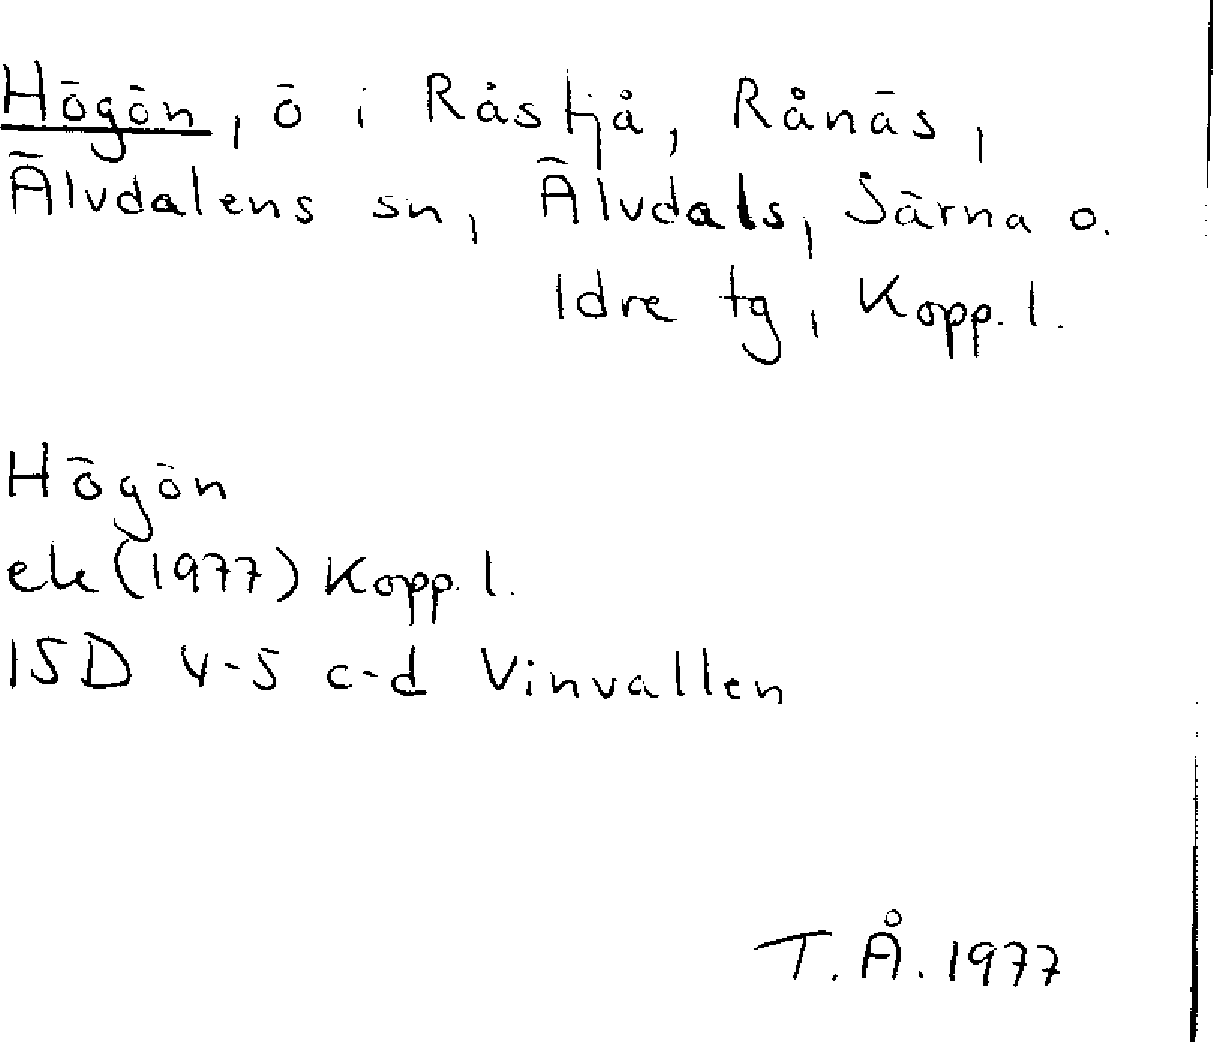 Högön, ö i Råstjå, Rånäs,
Älvdalens sn, Älvdals, Särna o.
Idre tg, Kopp. l.
Högön
ek (1977) Kopp. l.
15D 4-5 c-d Vinvallen
T. Å. 1977